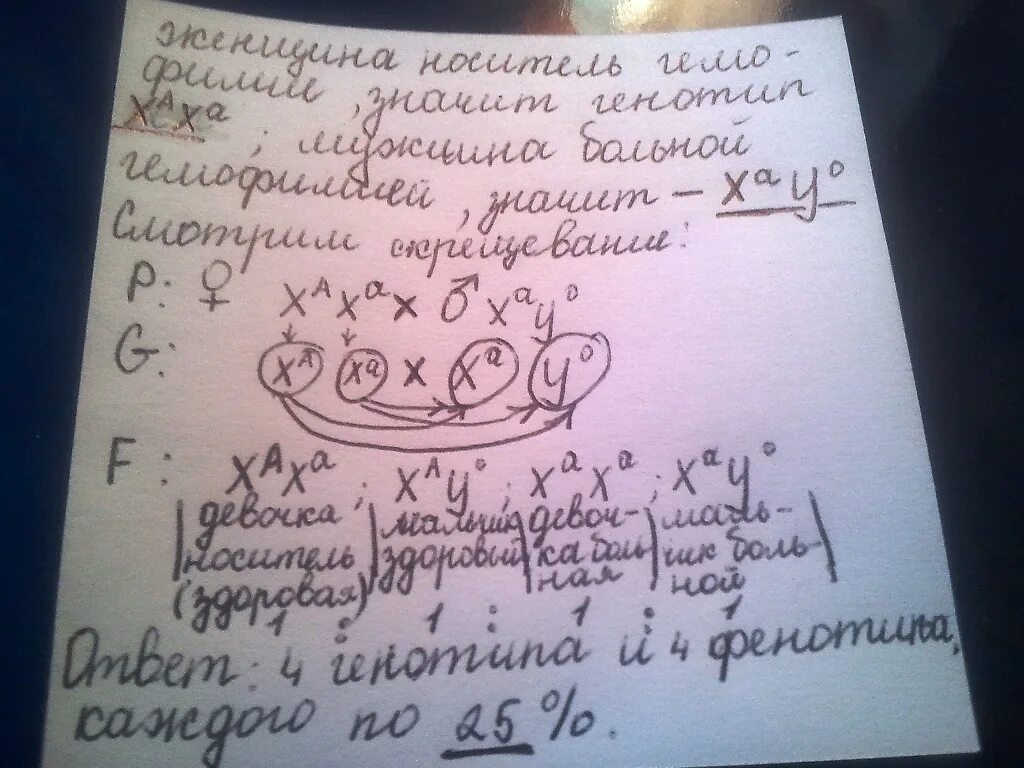 женщина носитель гемо-
филии, значит генотип
XᴬXᵃ; мужчина больной
гемофилией, значит – XᵃY⁰
Смотрим скрещевание:
P: ♀ XᴬXᵃ x ♂ XᵃY⁰
G: Xᴬ Xᵃ x Xᵃ Y⁰
F: XᴬXᵃ; XᴬY⁰; XᵃXᵃ; XᵃY⁰
|девочка |мальчик |девоч- |маль- |
носитель здоровый ка боль шик боль-
(здоровая) ная ной
1 : 1 : 1 : 1
Ответ: 4 генотипа и 4 фенотипа,
каждого по 25%.